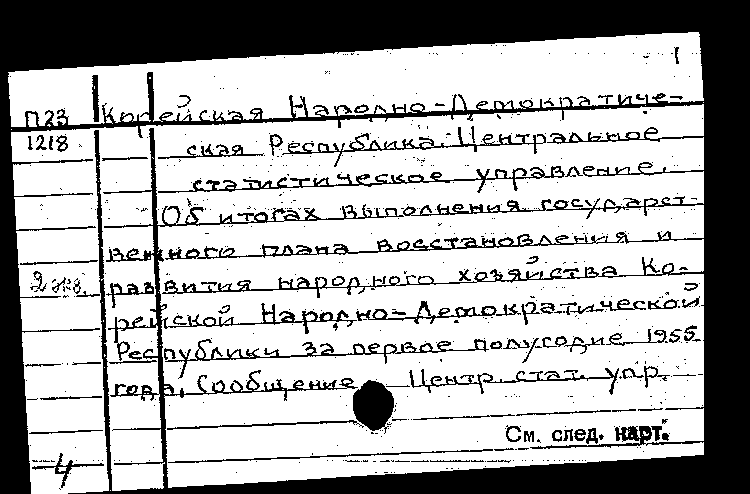 1
П23 Корейская Народно-Демократиче-
1218 ская Республика. Центральное
статистическое управление.
Об итогах выполнения государст-
венного плана восстановления и
2 экз. развития народного хозяйства Ко-
рейской Народно-Демократической
Республики за первое полугодие 1955
года. Сообщение Центр. стат. упр.
См. след. карт.
4